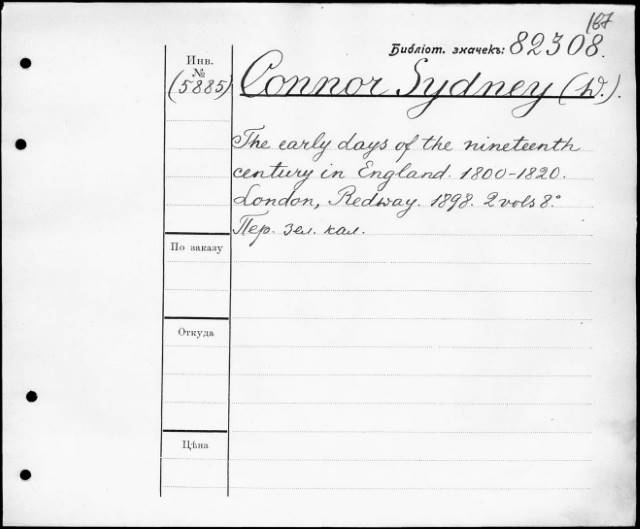 167
Библіот. значекъ: 82308.
Инв.
№
(5885)
Connor Sydney (W.).
The early days of the nineteenth
century in England. 1800-1820.
London, Redway. 1898. 2 vols 8.°
Пер. зел. кал.
По заказу
Откуда
Цѣна